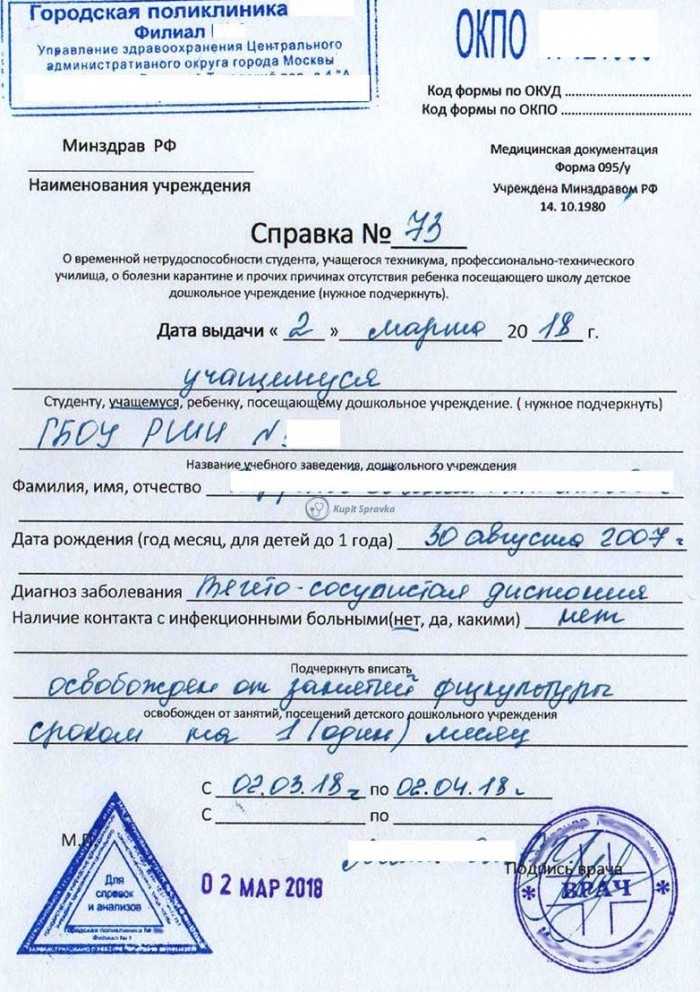 Городская поликлиника
Филиал
Управление здравоохранения Центрального
административного округа города Москвы
ОКПО
Код формы по ОКУД
Код формы по ОКПО
Минздрав РФ
Наименования учреждения
Медицинская документация
Форма 095/у
Учреждена Минздравом РФ
14. 10.1980
Справка № 73
О временной нетрудоспособности студента, учащегося техникума, профессионально-технического
училища, о болезни карантине и прочих причинах отсутствия ребенка посещающего школу детское
дошкольное учреждение (нужное подчеркнуть).
Дата выдачи « 2 » марта 20 18 г.
учащемуся
Студенту, учащемуся, ребенку, посещающему дошкольное учреждение. ( нужное подчеркнуть)
ГБОУ РШИ №
Название учебного заведения, дошкольного учреждения
Фамилия, имя, отчество
Kupit Spravka
Дата рождения (год месяц, для детей до 1 года) 30 августа 2007 г
Диагноз заболевания Вегето-сосудистая дистония
Наличие контакта с инфекционными больными(нет, да, какими) нет
Подчеркнуть вписать
освобожден от занятий физкультуры
освобожден от занятий, посещений детского дошкольного учреждения
сроком на 1 (один) месяц
С 02.03.18 г по 02.04.18 г
С по
М.П.
Подпись врача
Для
справок
и анализов
Городская поликлиника №
Филиал № 1
02 МАР 2018
* ВРАЧ *